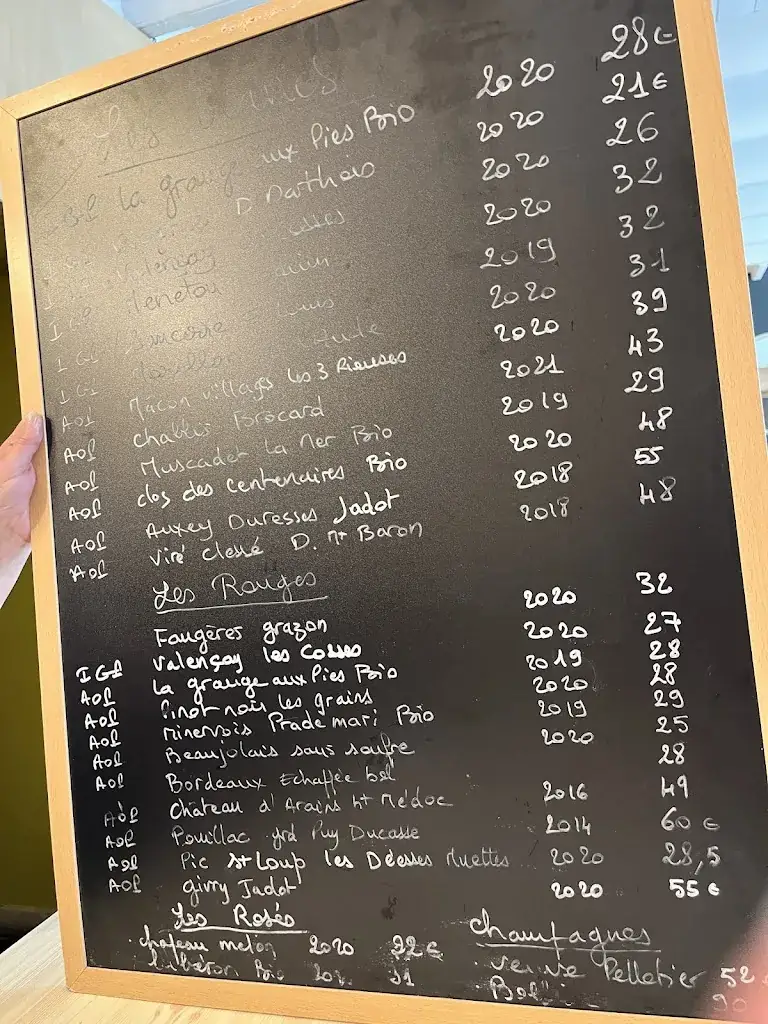 Les 2020 28€
IGP La grange aux Pies Bio 2020 21€
D. Mathais 2020 26
Valençay 2020 32
IGP Menetou 2019 32
IGP 2020 31
IGP 2020 39
AOP Mâcon villages les 3 Rieuses 2021 43
AOP Chablis Brocard 2019 29
AOP Muscadet La Mer Bio 2020 48
AOP Clos des Centenaires Bio 2018 55
AOP Auxey Duresses Jadot 2018 48
AOP Viré Clessé D. Mt Baron
Les Rouges
Faugères grazon 2020 32
IGP Valençay les Cosses 2020 27
AOP La grange aux Pies Bio 2019 28
AOP Pinot noir les grains 2020 28
AOP Minervois Prade mari Bio 2019 29
AOP Beaujolais sans soufre 2020 25
AOP Bordeaux Echappée bel 28
AOP Château d'Arcins Ht Médoc 2016 49
AOP Pouillac grd Puy Ducasse 2014 60€
AOP Pic St Loup les Déesses Muettes 2020 28,5
AOP givry Jadot 2020 55€
Les Rosés
chateau 2020 32€
Bio 31
Champagnes
veuve Pelletier 52
90